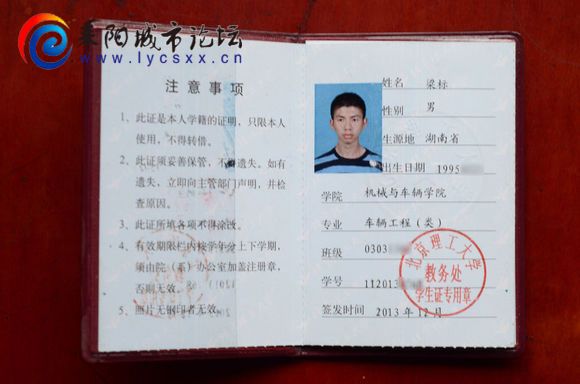 耒阳城市论坛
www.lycsxx.cn
注意事项
1、此证是本人学籍的证明，只限本人
使用，不得转借。
2、此证须妥善保管，不得遗失，如有
遗失，立即向主管部门声明，并检
查原因。
3、此证所填各项不得涂改。
4、有效期限栏内按学年分上下学期，
须由院（系）办公室加盖注册章，
否则无效。
5、照片无钢印者无效。
姓名 梁标
性别 男
生源地 湖南省
出生日期 1995
学院 机械与车辆学院
专业 车辆工程（类）
班级 0303
学号 112013
签发时间 2013年 12月
北京理工大学
教务处
学生证专用章